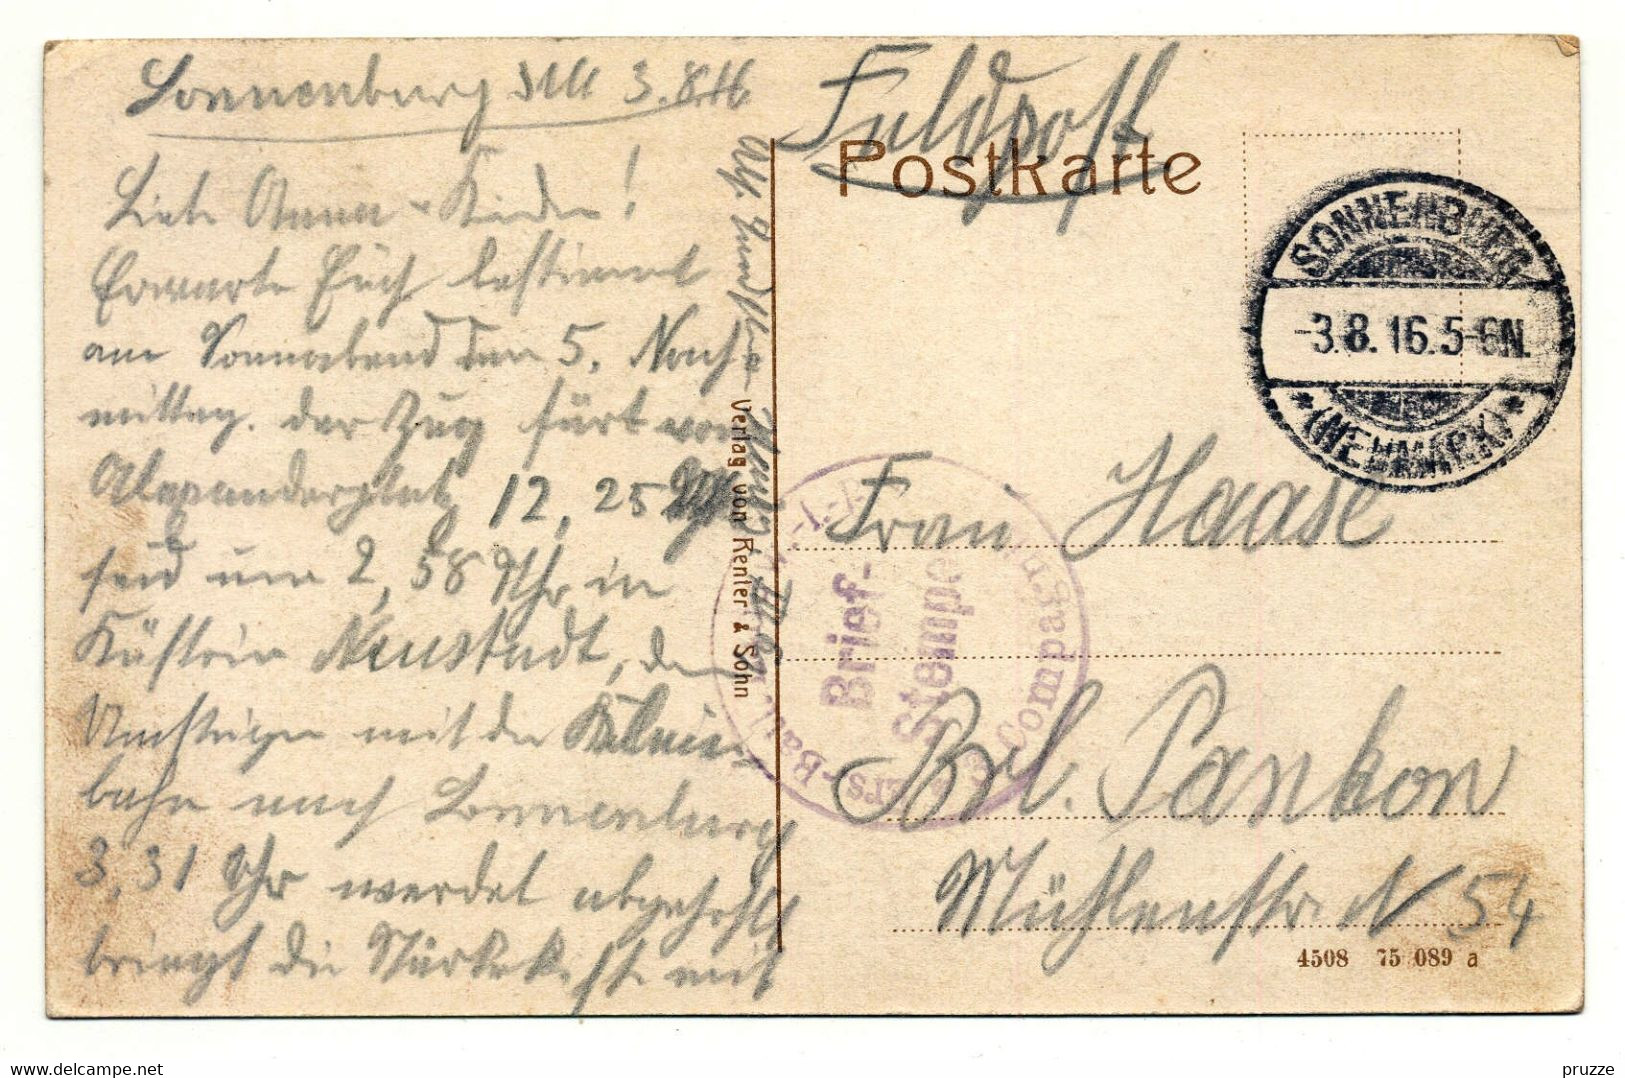 Sonnenburg NM 3.8.16
Liebe Anna - Kinder!
Erwarte Euch bestimmt
am Sonnabend den 5. Nach-
mittag. der Zug fürt von
Alexanderplatz 12,25
seid um 2,58 Uhr in
Küstrin Neustadt, dan
Umsteigen mit der Klein
bahn nach Sonnenburg
3,31 Uhr werdet abgehohlt
bringt die mit
Verlag von Renter & Sohn
Feldpost
Postkarte
SONNENBURG
-3.8.16.5-6N.
*(NEUMARK)*
Brief-
Stempel
Compagnie
Frau Haase
Brl. Pankow
Mühlenstr. N 54
4508 75 089 a
pruzze